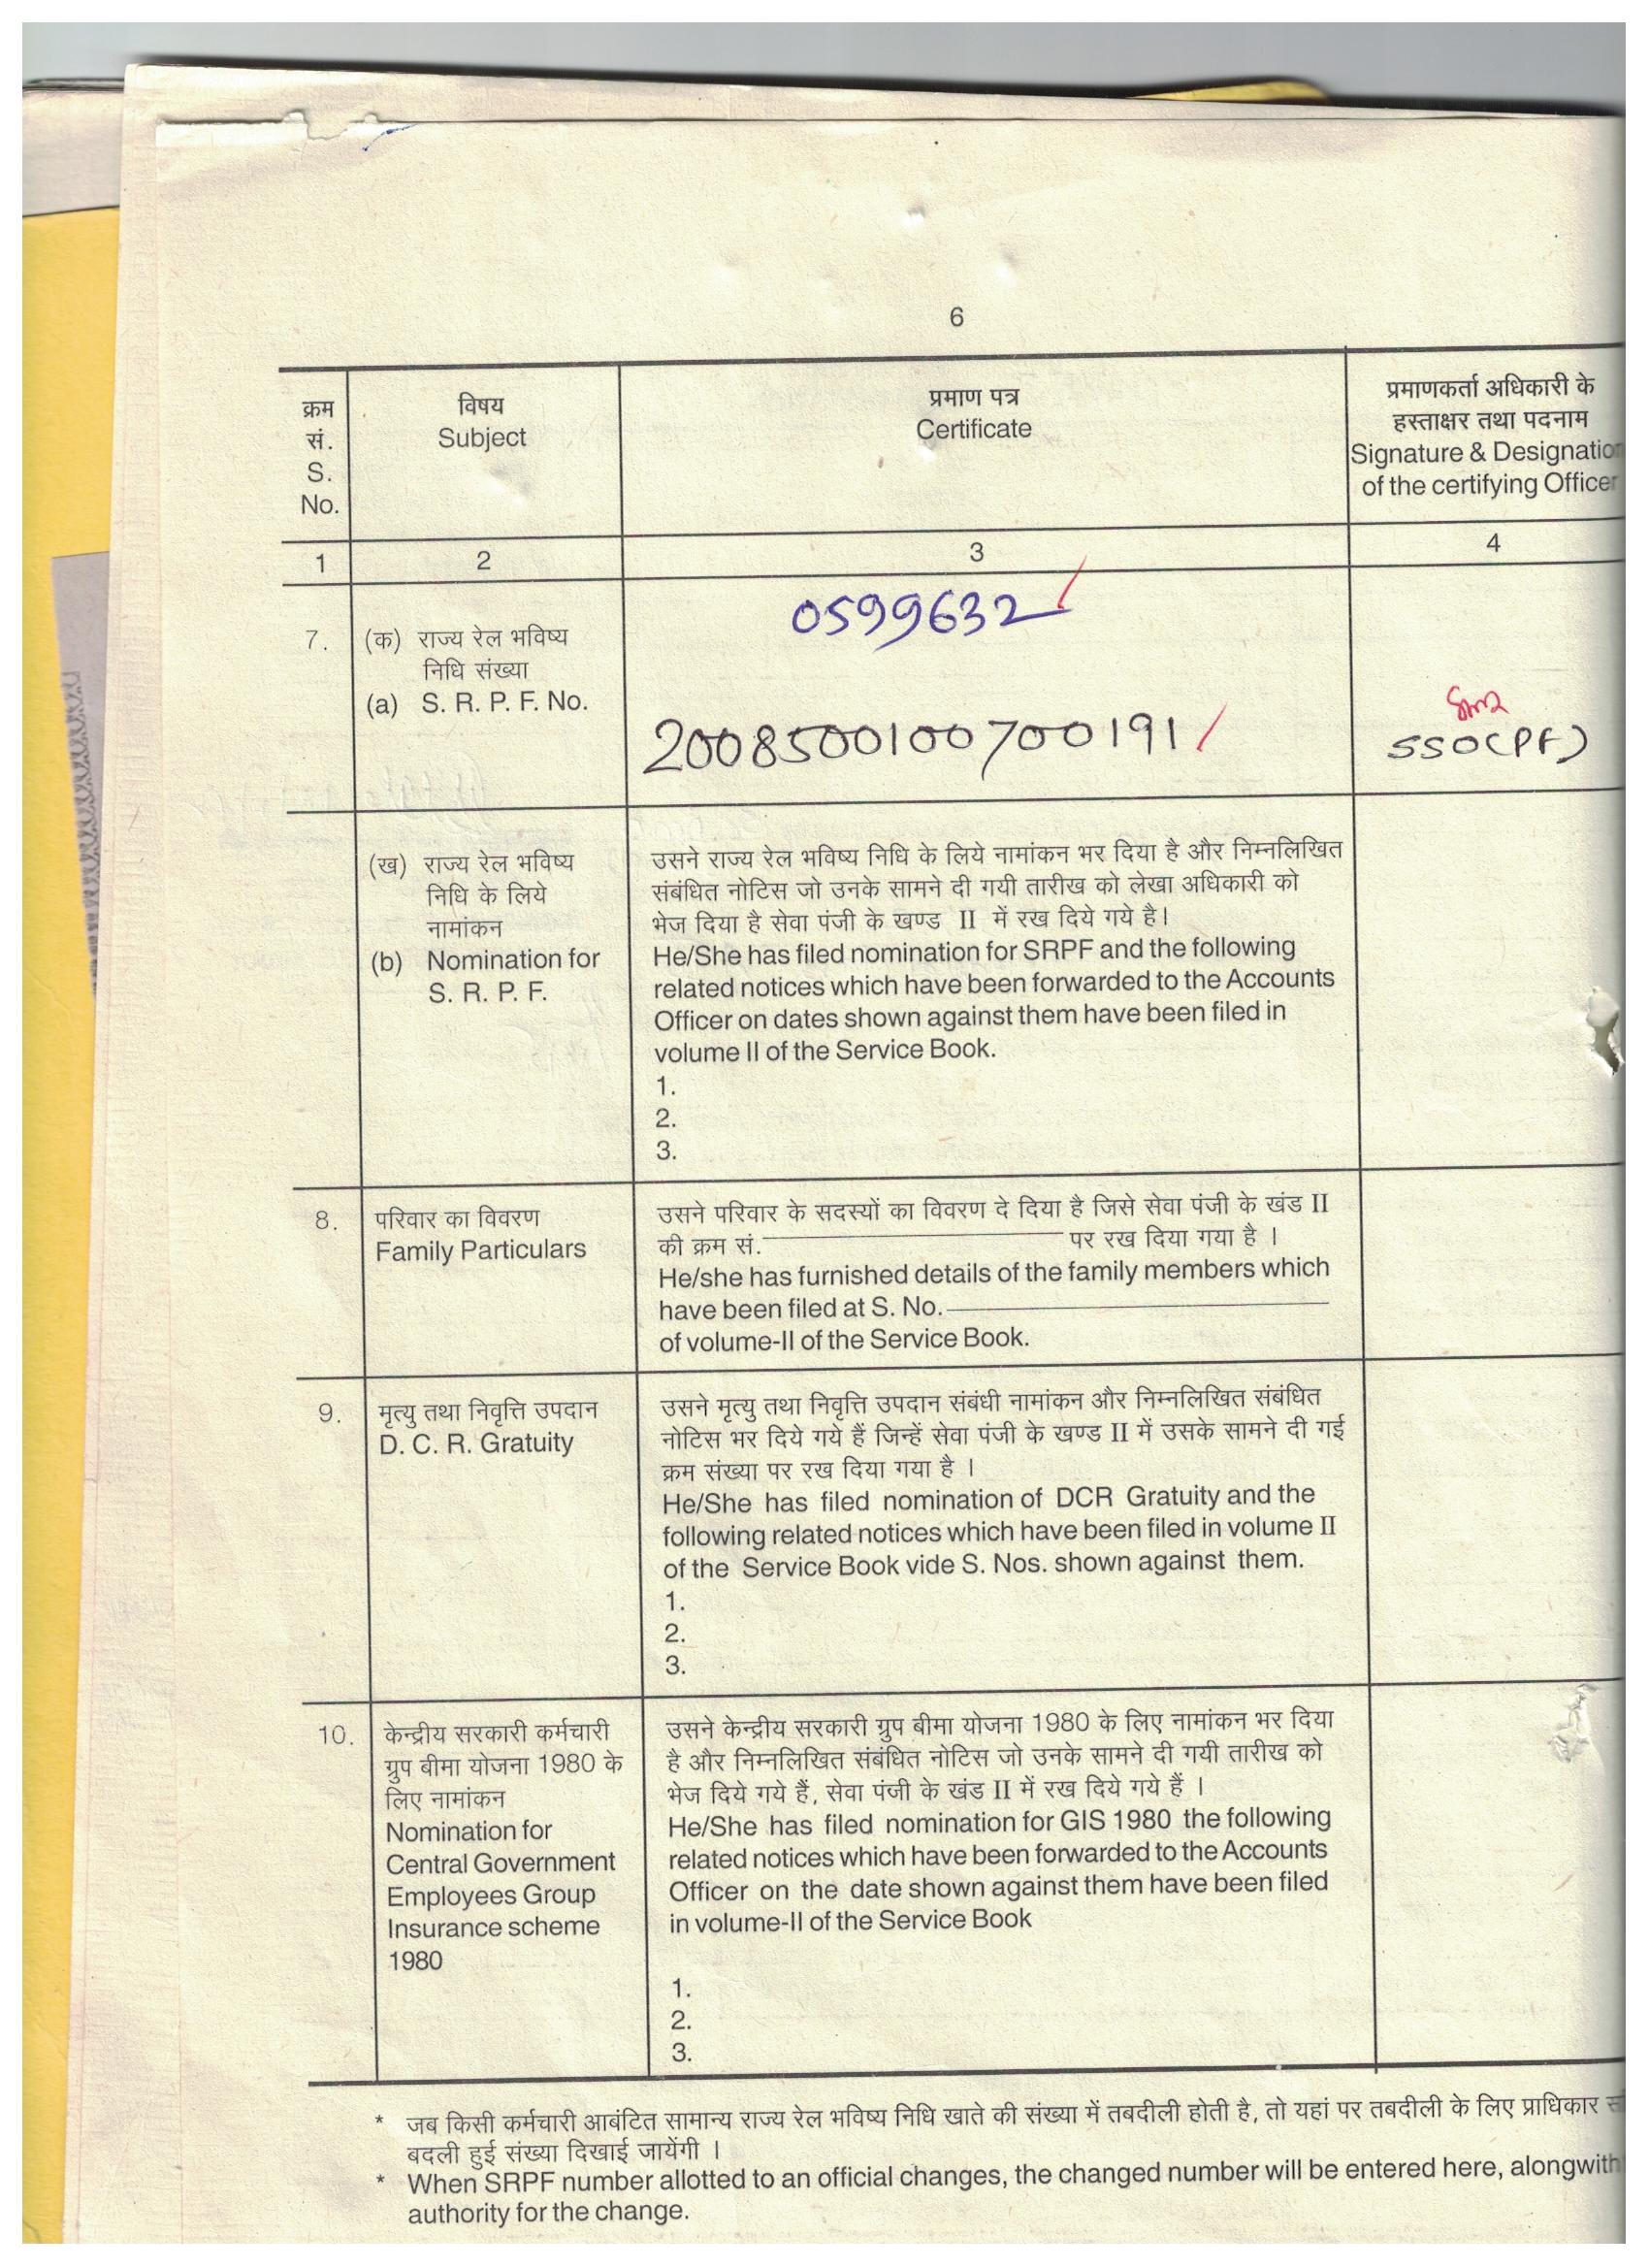 6
क्रम
सं.
S.
No.
विषय
Subject
प्रमाण पत्र
Certificate
प्रमाणकर्ता अधिकारी के
हस्ताक्षर तथा पदनाम
Signature & Designation
of the certifying Officer
1 2 3 4
0599632
7. (क) राज्य रेल भविष्य
निधि संख्या
(a) S. R. P. F. No.
2008500100700191
SSO(PF)
(ख) राज्य रेल भविष्य
निधि के लिये
नामांकन
(b) Nomination for
S. R. P. F.
उसने राज्य रेल भविष्य निधि के लिये नामांकन भर दिया है और निम्नलिखित
संबंधित नोटिस जो उनके सामने दी गयी तारीख को लेखा अधिकारी को
भेज दिया है सेवा पंजी के खण्ड II में रख दिये गये है।
He/She has filed nomination for SRPF and the following
related notices which have been forwarded to the Accounts
Officer on dates shown against them have been filed in
volume II of the Service Book.
1.
2.
3.
8. परिवार का विवरण
Family Particulars
उसने परिवार के सदस्यों का विवरण दे दिया है जिसे सेवा पंजी के खंड II
की क्रम सं. पर रख दिया गया है ।
He/she has furnished details of the family members which
have been filed at S. No.
of volume-II of the Service Book.
9. मृत्यु तथा निवृत्ति उपदान
D. C. R. Gratuity
उसने मृत्यु तथा निवृत्ति उपदान संबंधी नामांकन और निम्नलिखित संबंधित
नोटिस भर दिये गये हैं जिन्हें सेवा पंजी के खण्ड II में उसके सामने दी गई
क्रम संख्या पर रख दिया गया है ।
He/She has filed nomination of DCR Gratuity and the
following related notices which have been filed in volume II
of the Service Book vide S. Nos. shown against them.
1.
2.
3.
10. केन्द्रीय सरकारी कर्मचारी
ग्रुप बीमा योजना 1980 के
लिए नामांकन
Nomination for
Central Government
Employees Group
Insurance scheme
1980
उसने केन्द्रीय सरकारी ग्रुप बीमा योजना 1980 के लिए नामांकन भर दिया
है और निम्नलिखित संबंधित नोटिस जो उनके सामने दी गयी तारीख को
भेज दिये गये हैं, सेवा पंजी के खंड II में रख दिये गये हैं ।
He/She has filed nomination for GIS 1980 the following
related notices which have been forwarded to the Accounts
Officer on the date shown against them have been filed
in volume-II of the Service Book
1.
2.
3.
* जब किसी कर्मचारी आबंटित सामान्य राज्य रेल भविष्य निधि खाते की संख्या में तबदीली होती है, तो यहां पर तबदीली के लिए प्राधिकार
बदली हुई संख्या दिखाई जायेंगी ।
* When SRPF number allotted to an official changes, the changed number will be entered here, alongwith
authority for the change.